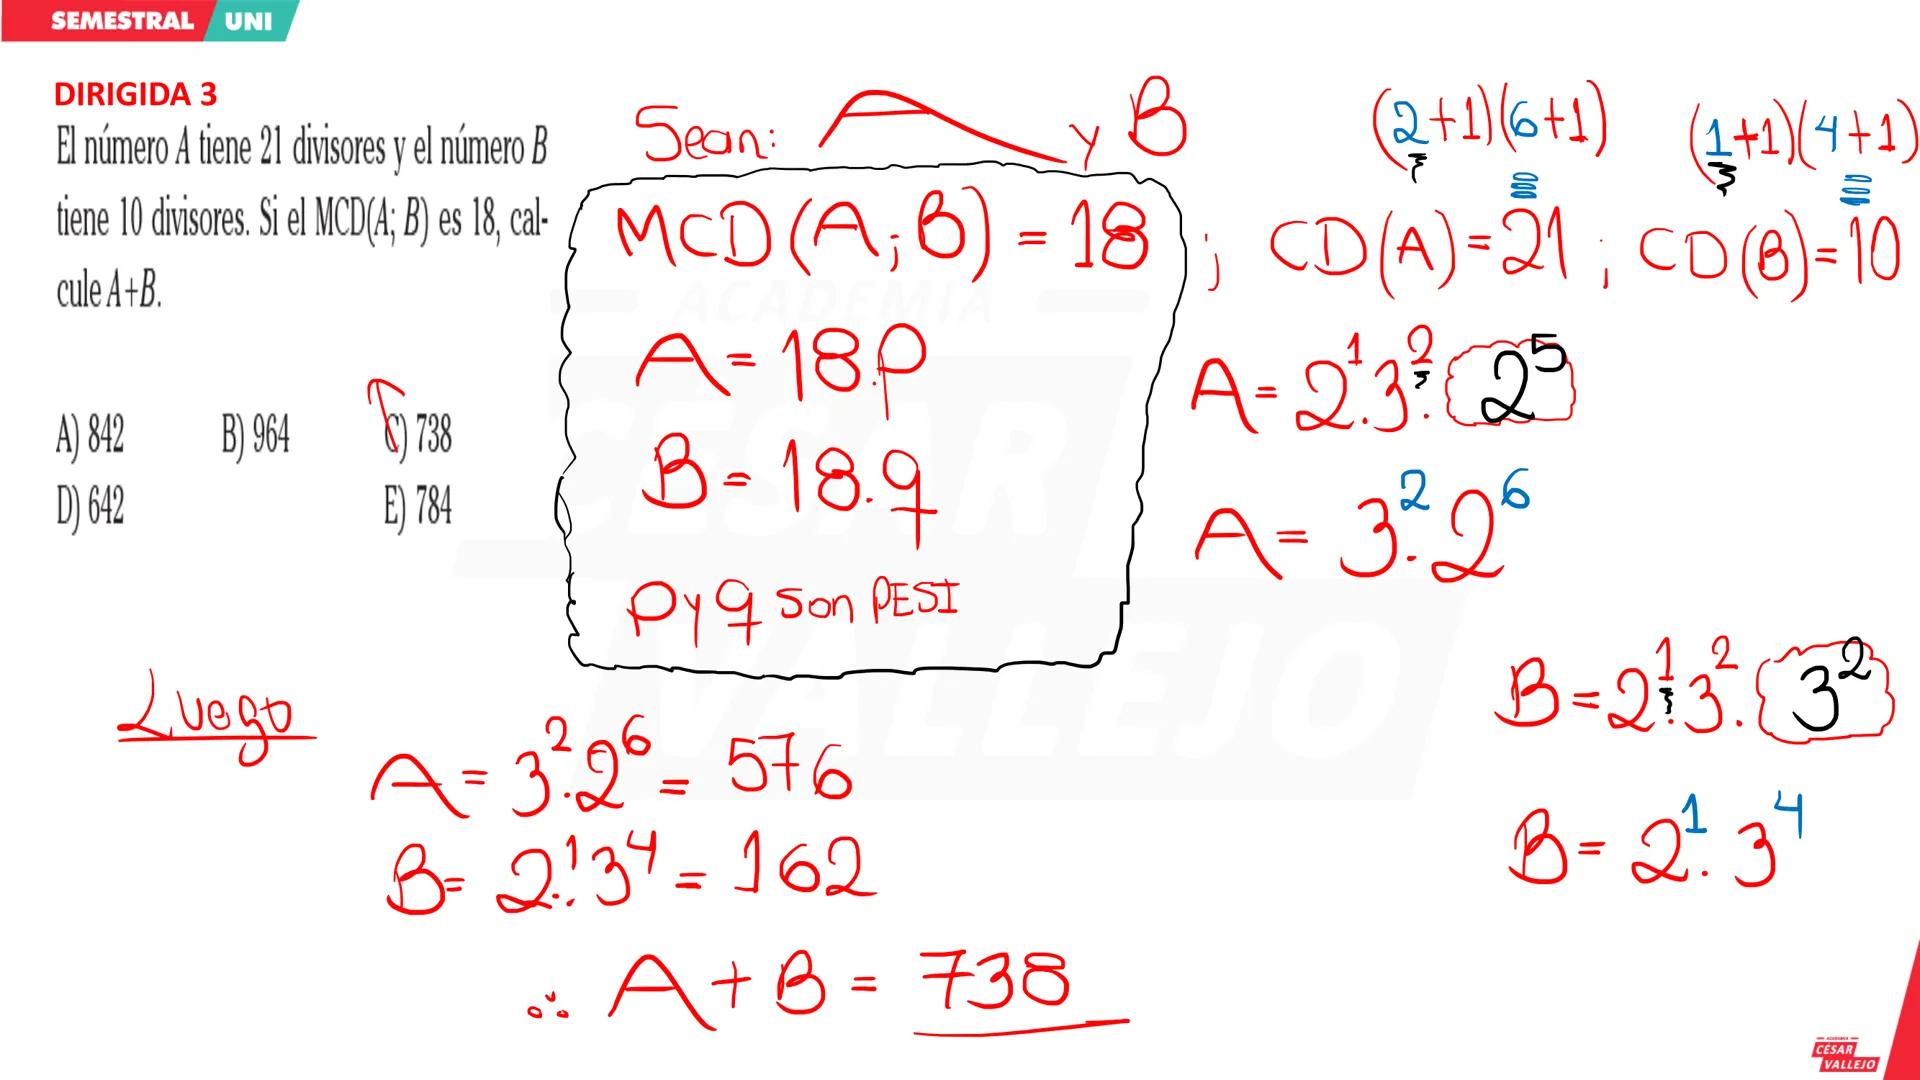 SEMESTRAL UNI
DIRIGIDA 3
El número A tiene 21 divisores y el número B
tiene 10 divisores. Si el MCD(A; B) es 18, cal-
cule A+B.
A) 842 B) 964 C) 738
D) 642 E) 784
Sean: A y B
MCD(A;B) = 18 ; CD(A)=21 ; CD(B)=10
(2+1)(6+1) (1+1)(4+1)
A = 18.p
B = 18.q
p y q son PESI
A = 2¹.3².2⁵
A = 3².2⁶
B = 2¹.3².3²
B = 2¹.3⁴
Luego
A = 3².2⁶ = 576
B = 2¹.3⁴ = 162
∴ A + B = 738
ACADEMIA
CÉSAR
VALLEJO
ACADEMIA
CÉSAR
VALLEJO